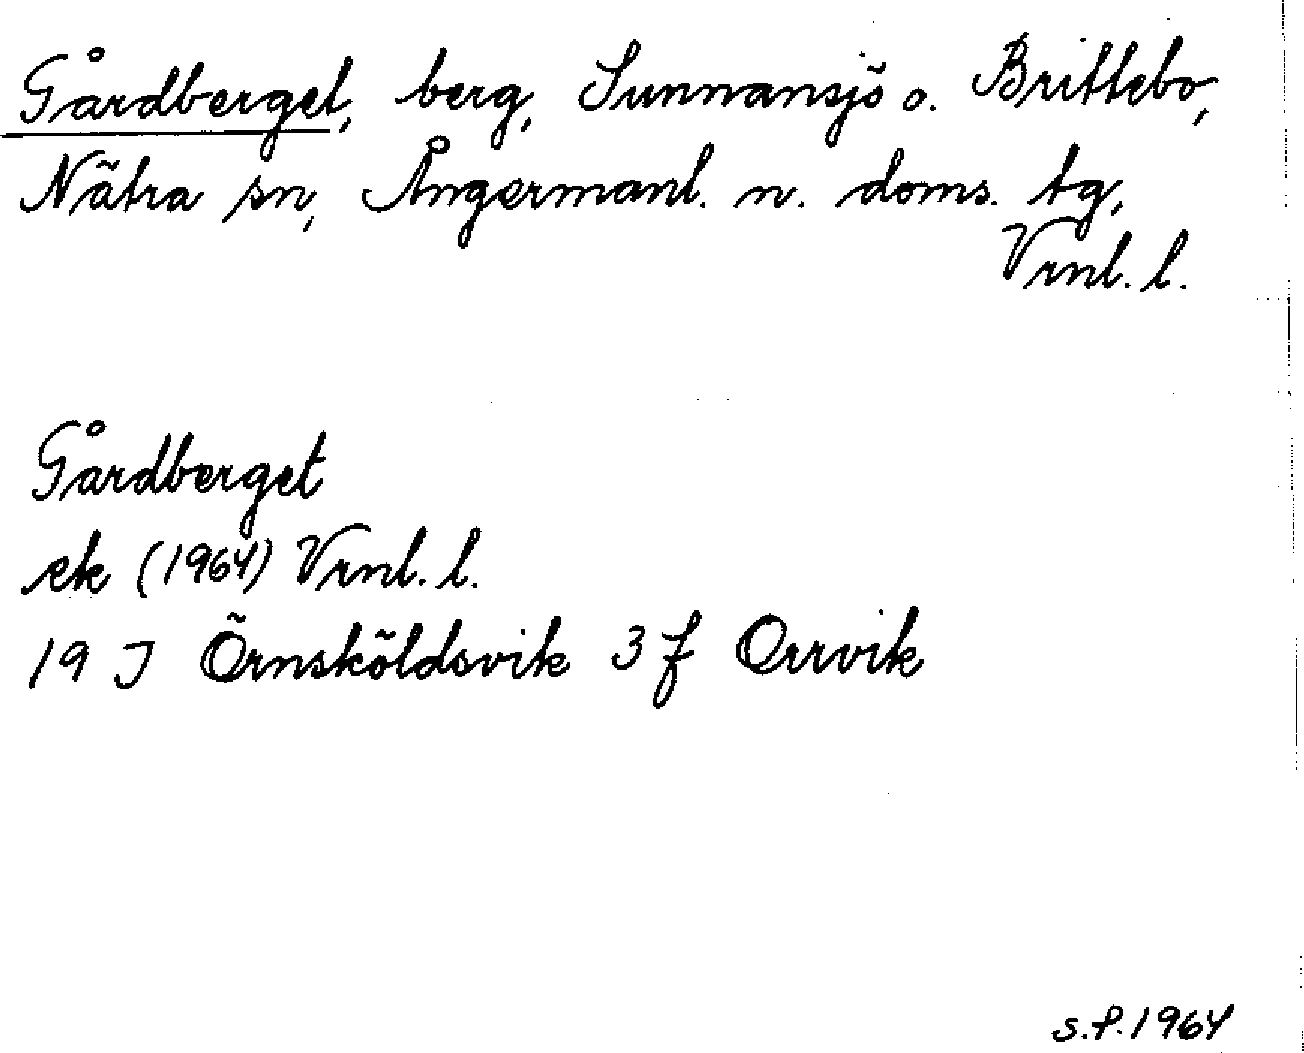 Gårdberget, berg, Sunnansjö o. Brittebo,
Nätra sn, Ångermanl. n. doms. tg,
Vrnl. l.
Gårdberget
ek (1964) Vrnl. l.
19 J Örnsköldsvik 3 f Orrvik
s.f. 1964